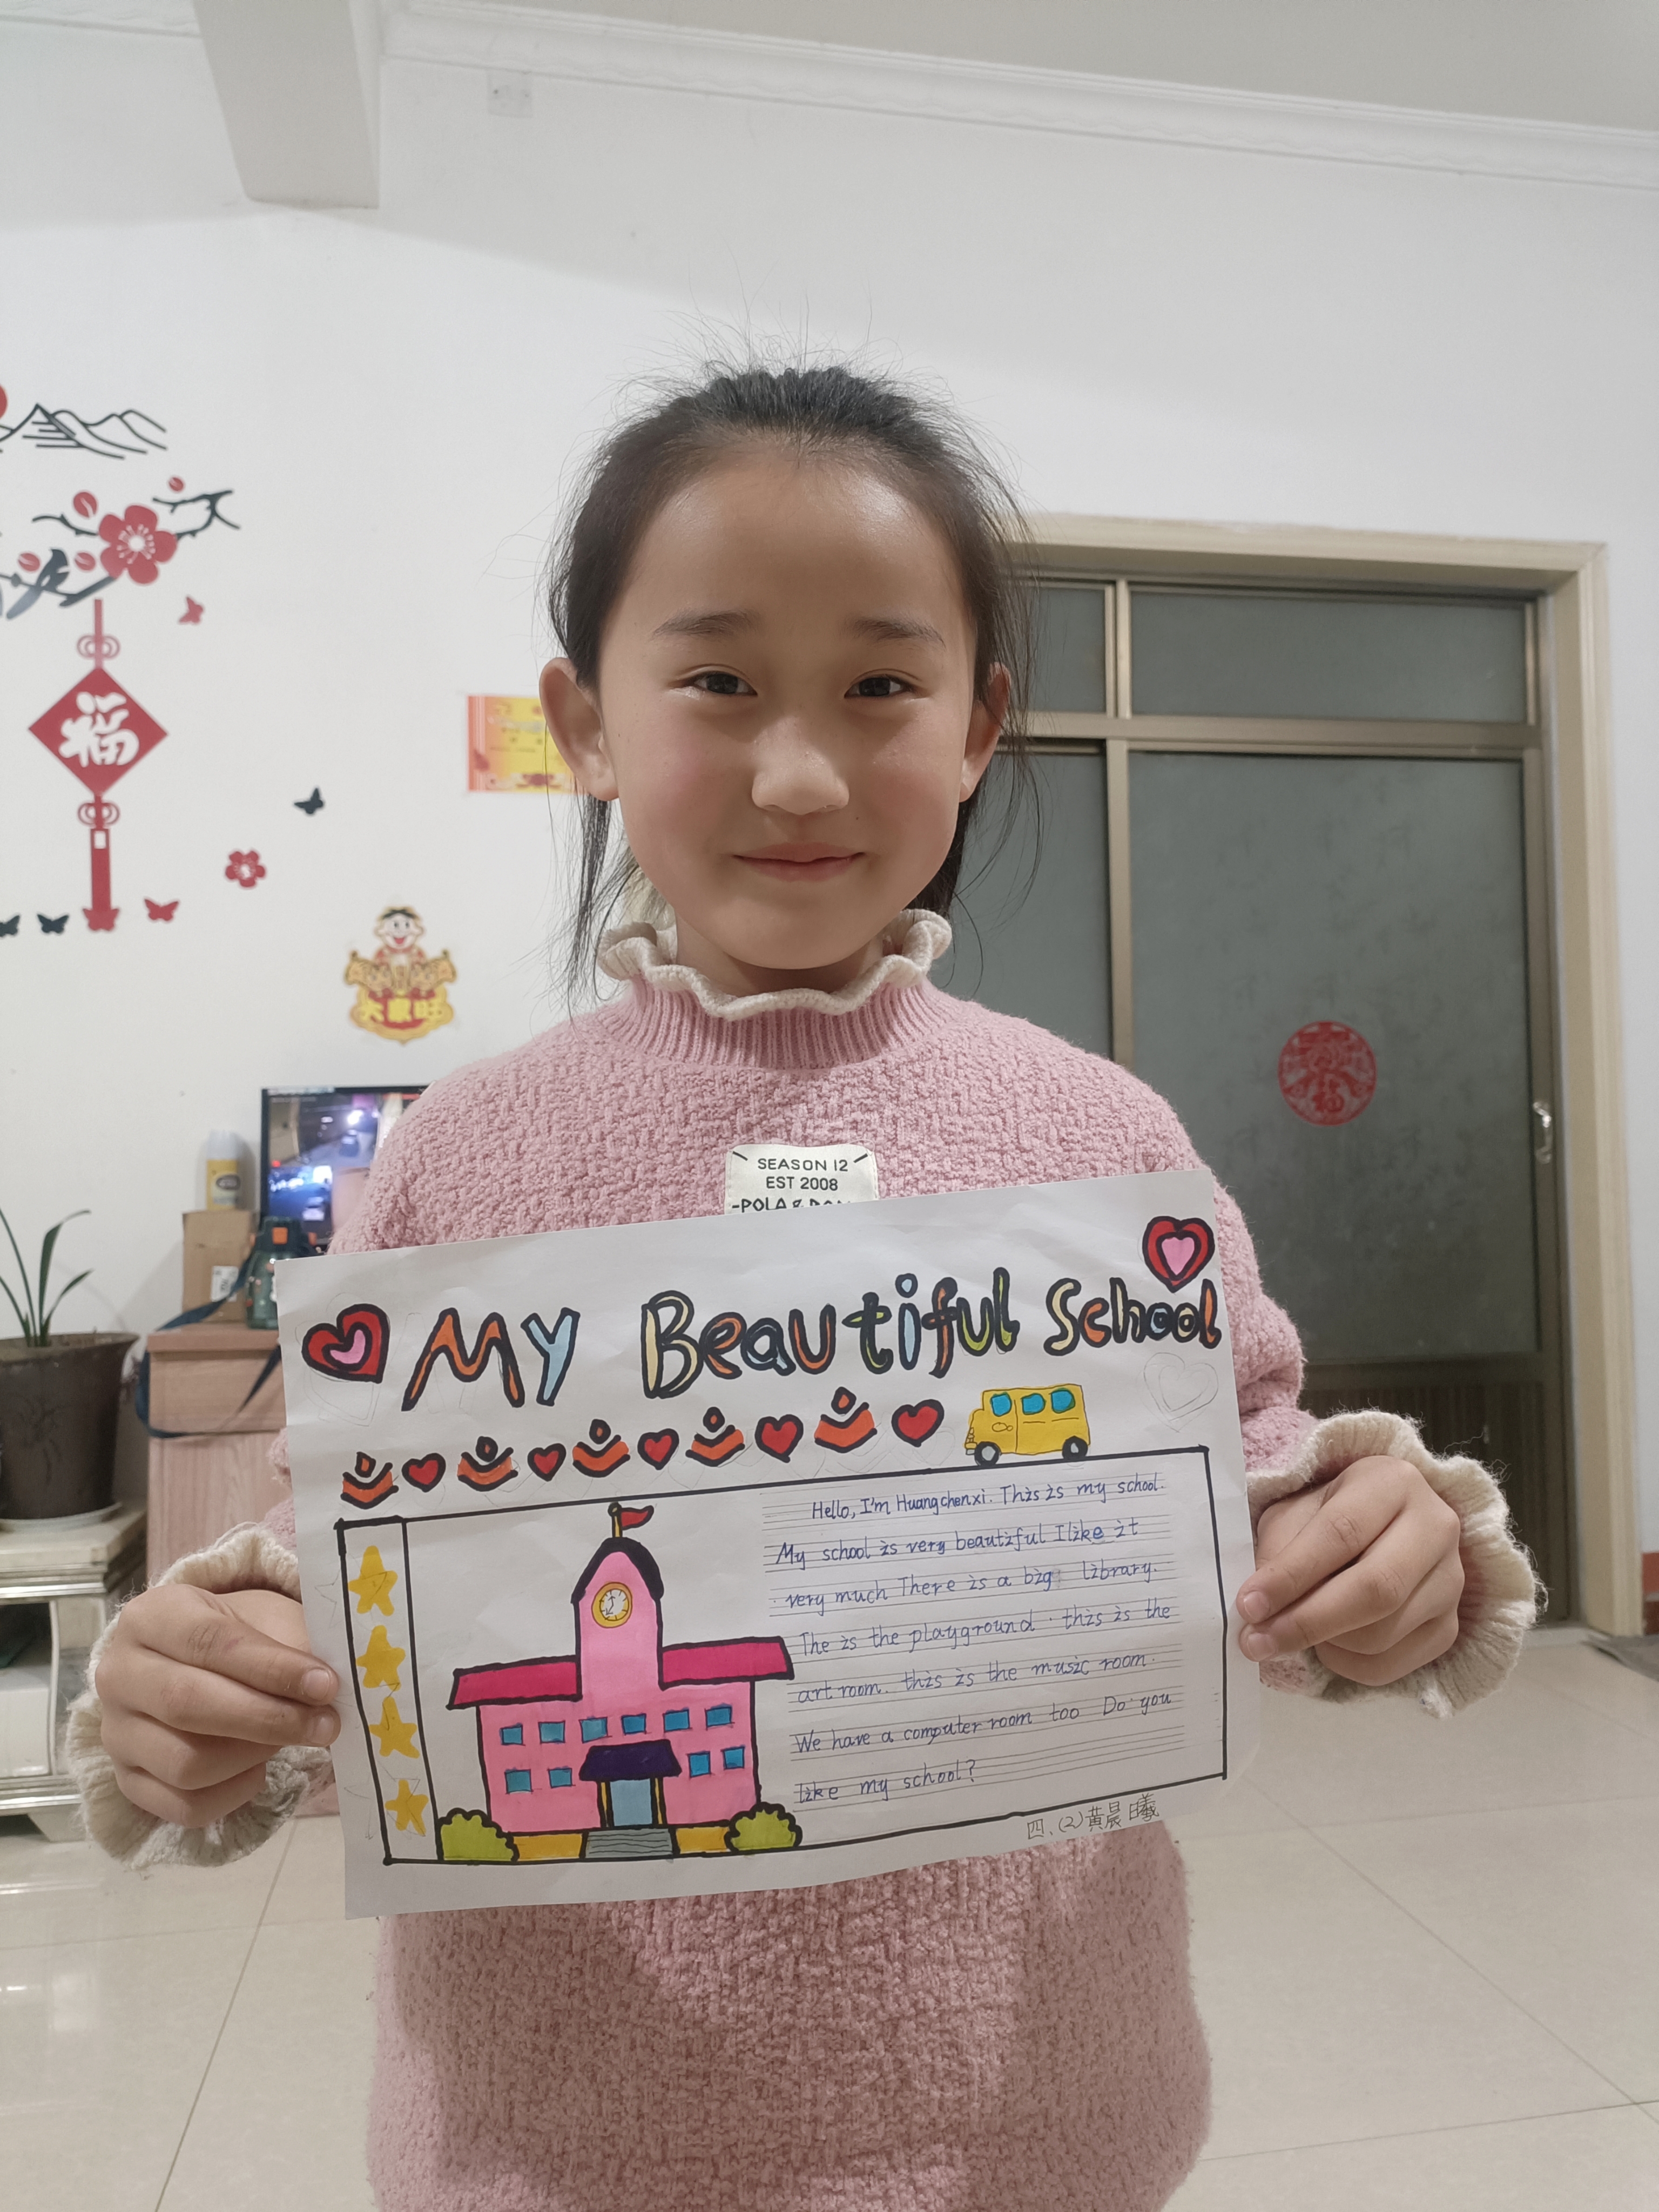 福
大家旺
SEASON 12
EST 2008
My Beautiful School
Hello, I'm Huangchenxi. This is my school.
My school is very beautiful I like it
very much There is a big library.
The is the playground. this is the
art room. this is the music room.
We have a computer room too Do you
like my school?
四.(2)黄晨曦